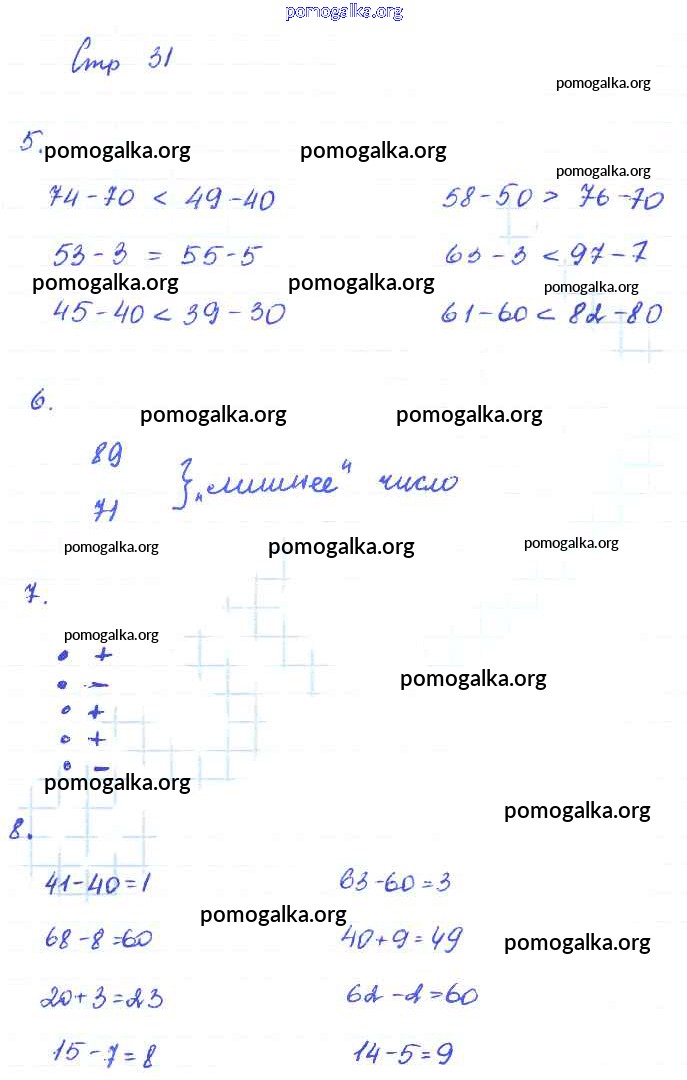 pomogalka.org
Стр 31
pomogalka.org
5.
pomogalka.org pomogalka.org
pomogalka.org
74-70 < 49-40 58-50 > 76-70
53-3 = 55-5 63-3 < 97-7
pomogalka.org pomogalka.org pomogalka.org
45-40 < 39-30 61-60 < 82-80
6.
pomogalka.org pomogalka.org
89
} „лишнее" число
71
pomogalka.org pomogalka.org pomogalka.org
7.
pomogalka.org
• +
• -
pomogalka.org
• +
• +
• -
pomogalka.org
pomogalka.org
8.
41-40=1 63-60=3
pomogalka.org
68-8=60 40+9=49
pomogalka.org
20+3=23 62-2=60
15-7=8 14-5=9